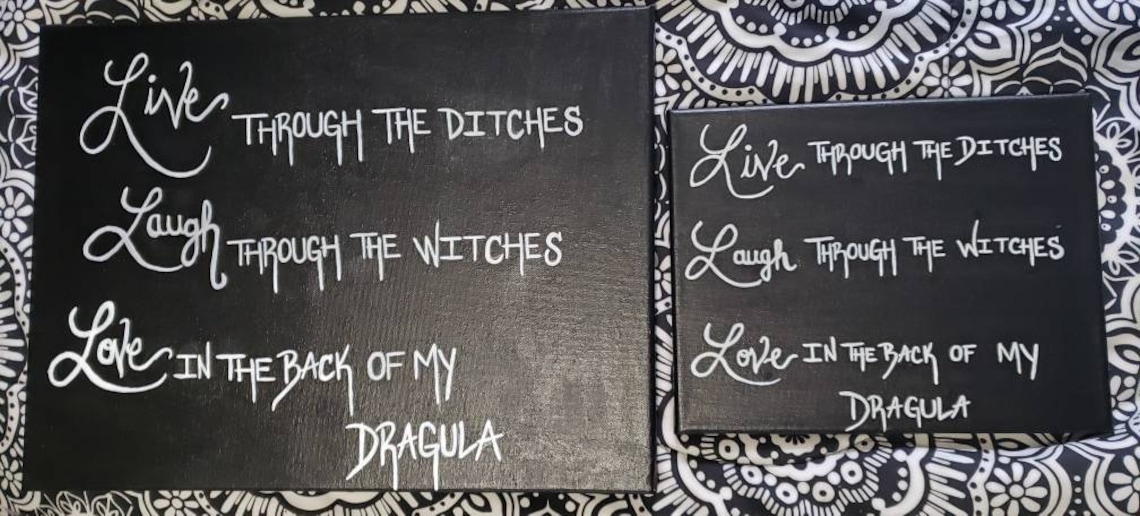 Live THROUGH THE DITCHES
Laugh THROUGH THE WITCHES
Love IN THE BACK OF MY
DRAGULA
Live THROUGH THE DITCHES
Laugh THROUGH THE WITCHES
Love IN THE BACK OF MY
DRAGULA